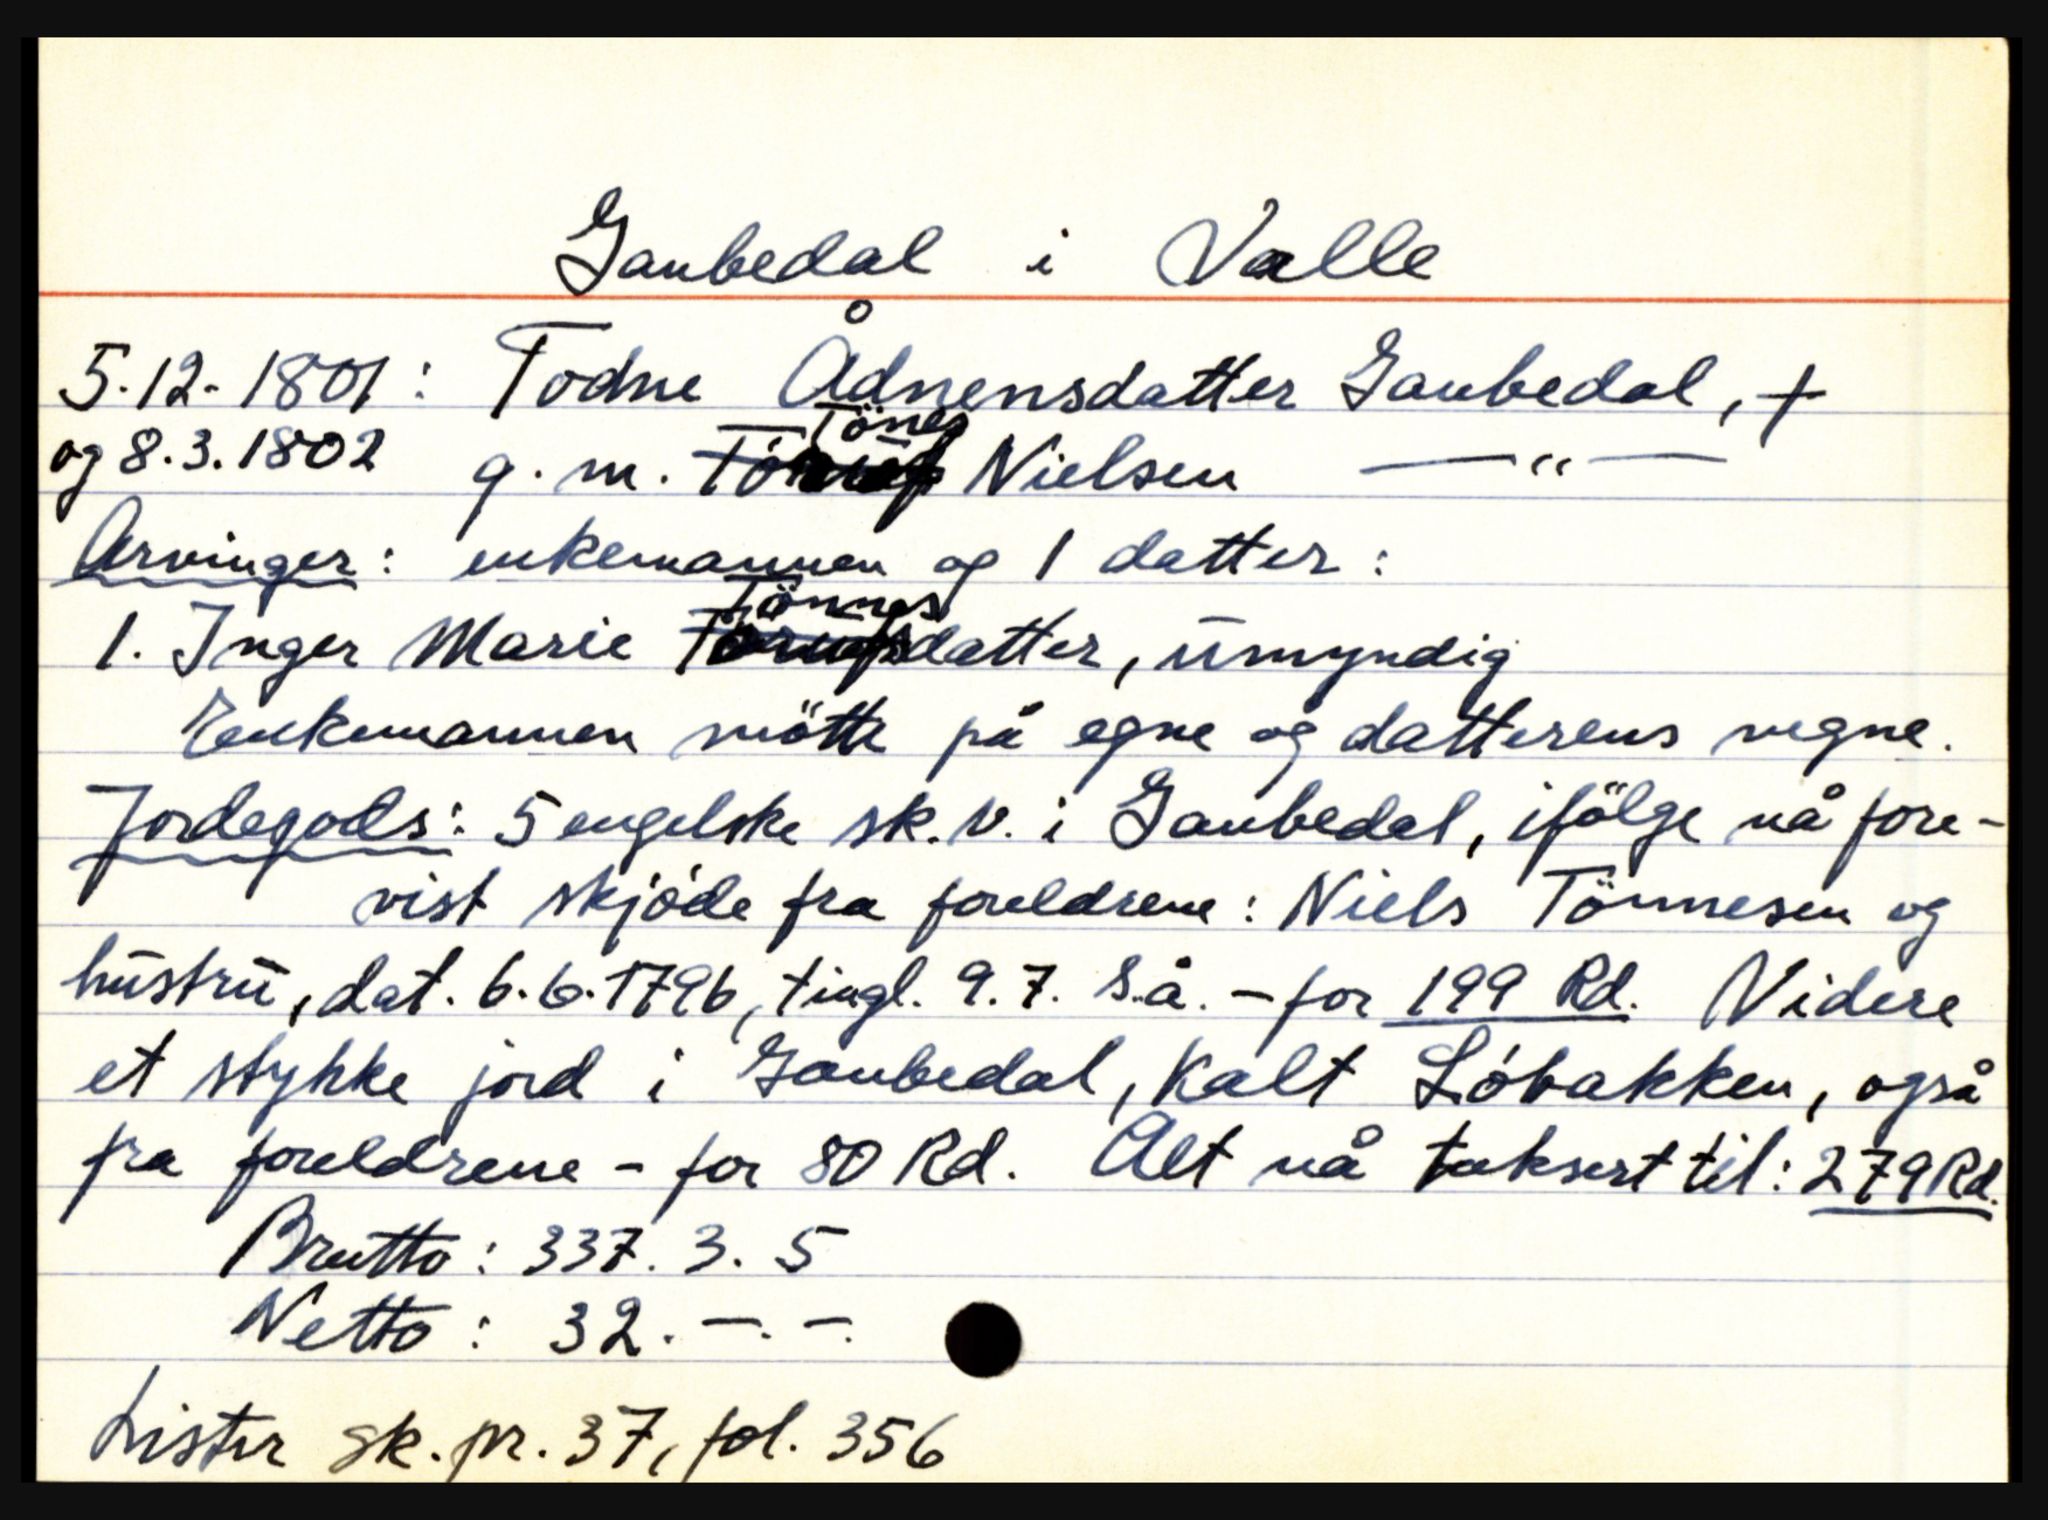 Gaubedal i Valle
5.12.1801: Todne Ådnensdatter Gaubedal, +
og 8.3.1802 g. m. Tönes Nielsen —"—
Arvinger: enkemannen og 1 datter:
1. Inger Marie Tönnesdatter, umyndig
Enkemannen mötte på egne og datterens vegne.
Jordegods: 5 engelske sk. v. i Gaubedal, ifölge nå fore-
vist skjöde fra foreldrene: Niels Tönnesen og
hustru, dat. 6.6.1796, tingl. 9.7. s.å. - for 199 Rd. Videre
et stykke jord i Gaubedal, kalt Lóbakken, også
fra foreldrene - for 80 Rd. Alt nå taksert til: 279 Rd.
Brutto: 337. 3. 5
Netto: 32. -. -.
Lister sk. pr. 37, fol. 356